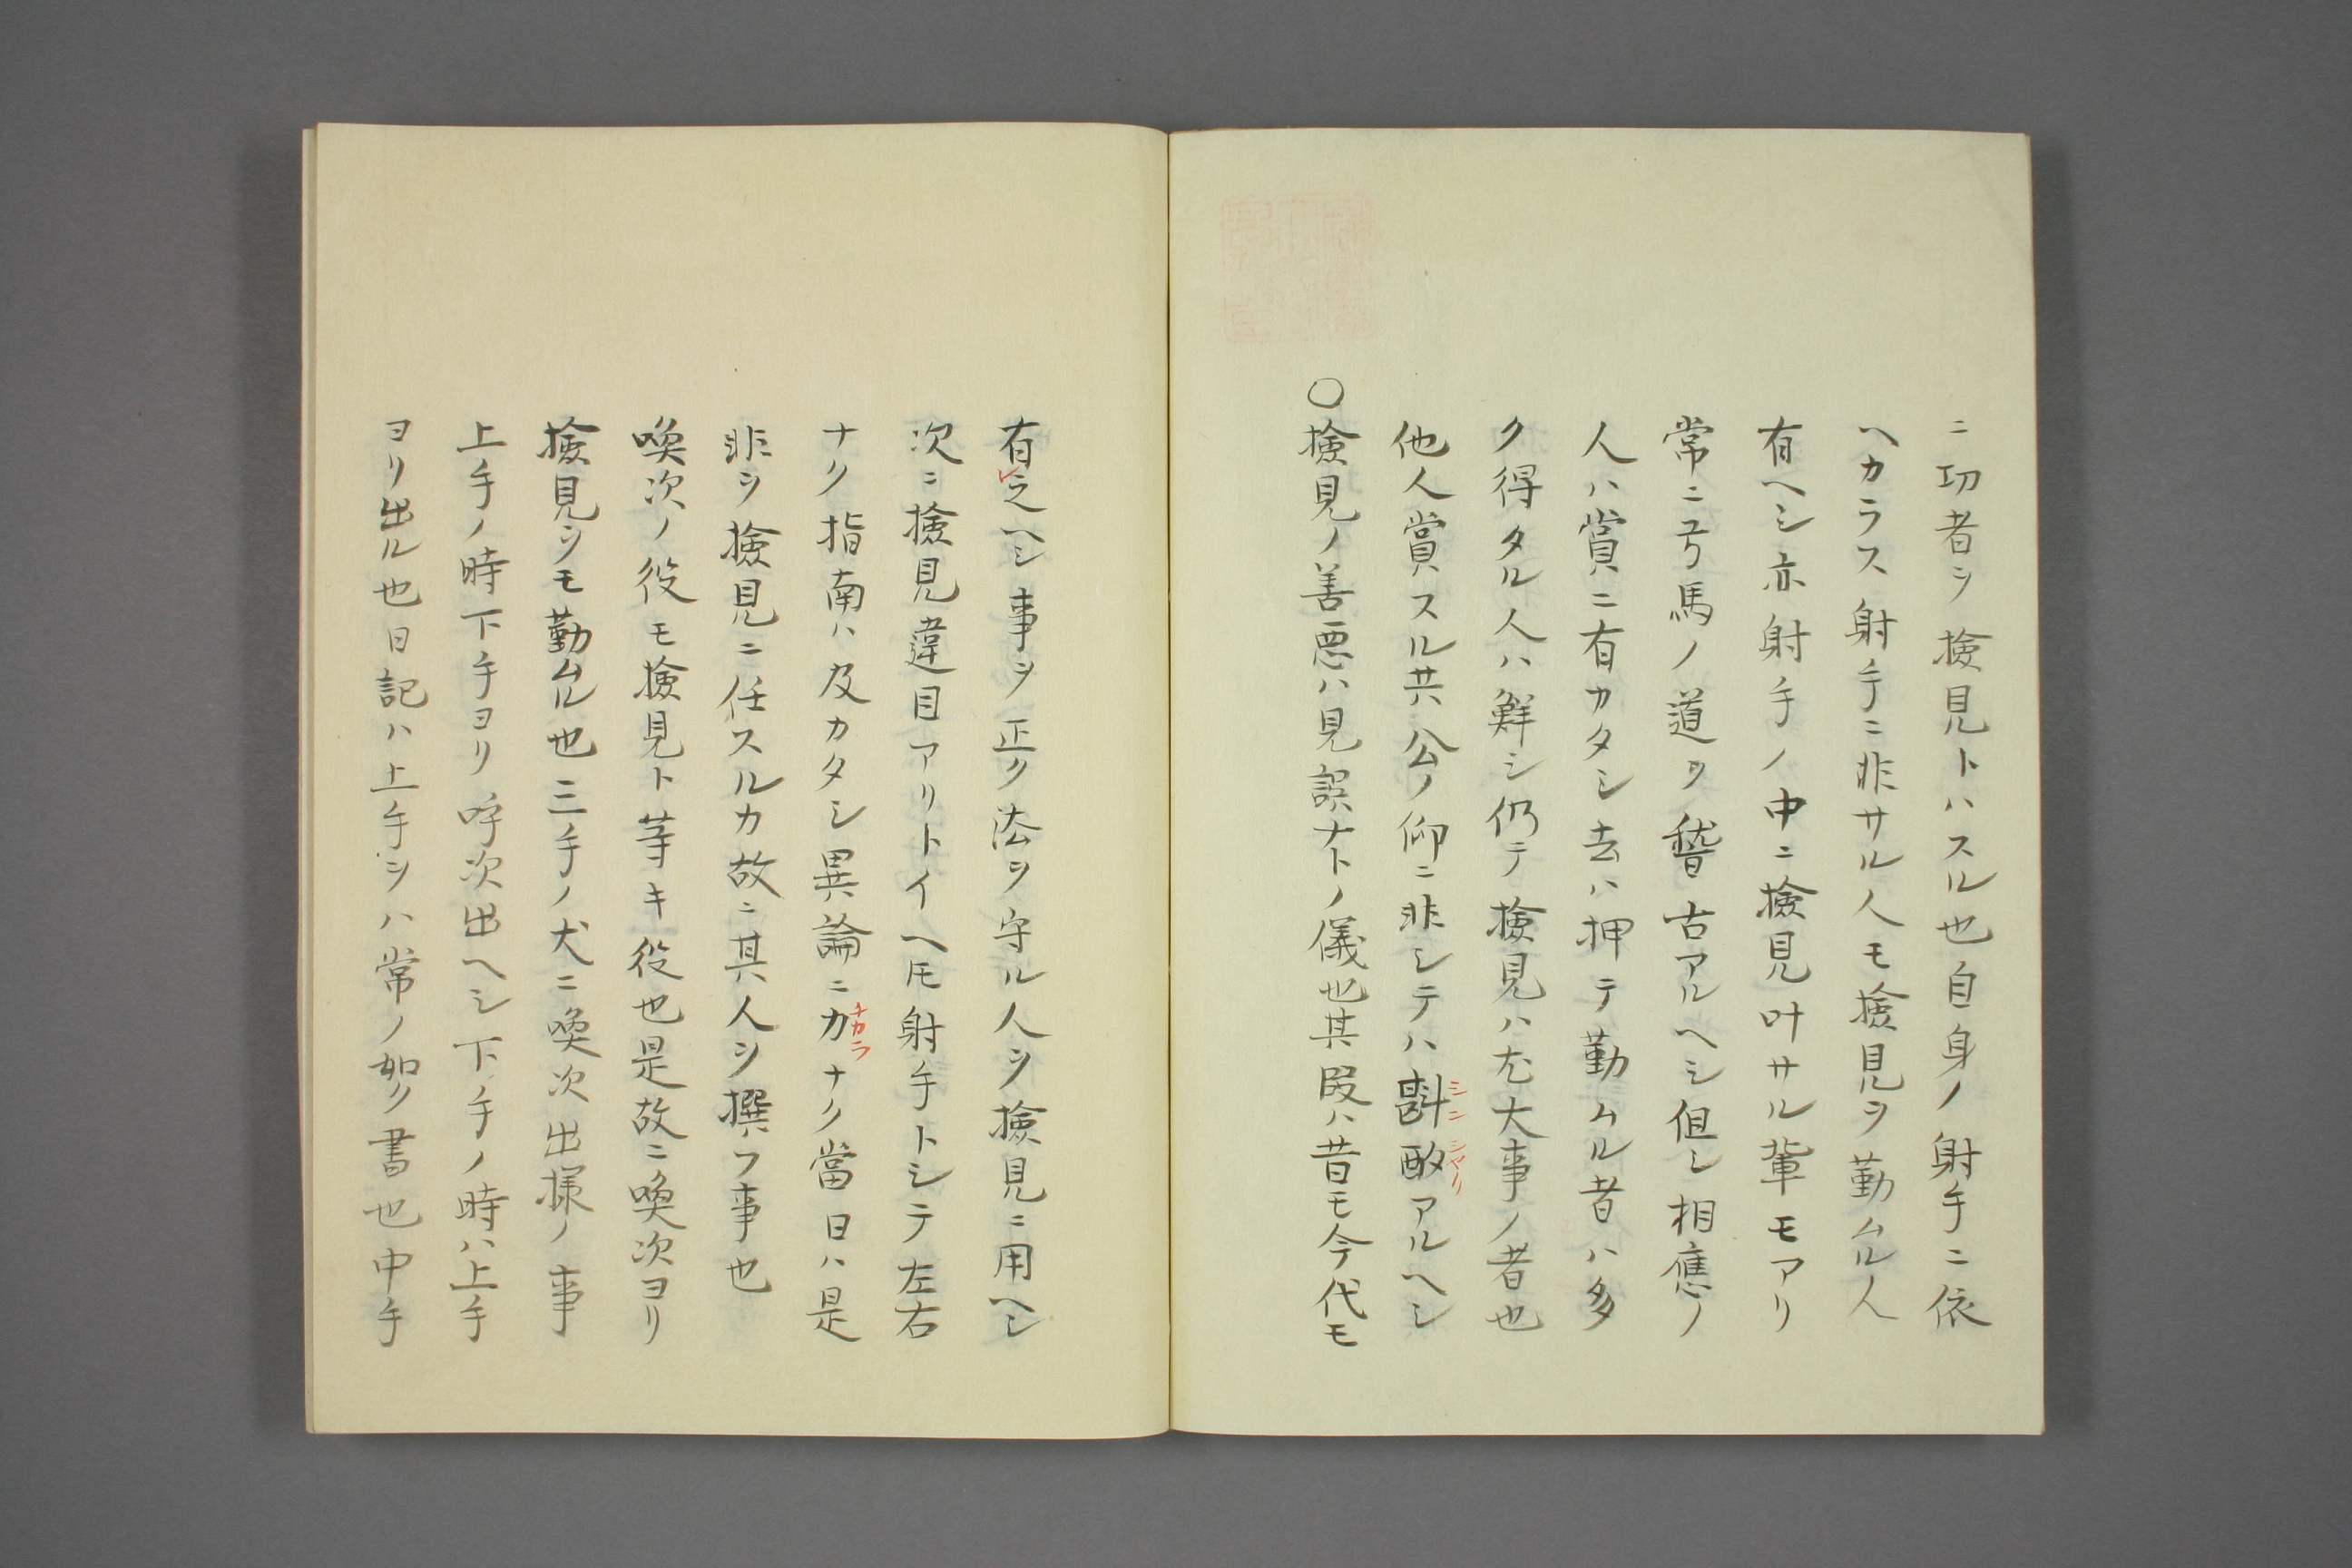 ニ功者ヲ撿見トハスル也自身ノ射手ニ依
ヘカラス射手ニ非サル人モ撿見ヲ勤ムル人
有ヘシ亦射手ノ中ニ撿見叶サル輩モアリ
常ニ弓馬ノ道ヲ稽古アルヘシ但シ相應ノ
人ハ賞ニ有カタシ去ハ押テ勤ムル者ハ多
ク得タル人ハ鮮シ仍テ撿見ハ尤大事ノ者也
他人賞スル共公ノ仰ニ非シテハ斟酌アルヘシ
シンシヤク
○撿見ノ善悪ハ見誤ナトノ儀也其段ハ昔モ今代モ
有之ヘシ事ヲ正ク法ヲ守ル人ヲ撿見ニ用ヘシ
レ
次ニ撿見違目アリトイヘ𪜈射手トシテ左右
ナク指南ハ及カタシ異論ニカナク當日ハ是
ナカラ
非ヲ撿見ニ任スルカ故ニ其人ヲ撰フ事也
喚次ノ役モ撿見ト等キ役也是故ニ喚次ヨリ
撿見ヲモ勤ムル也三手ノ犬ニ喚次出様ノ事
上手ノ時下手ヨリ呼次出ヘシ下手ノ時ハ上手
ヨリ出ル也日記ハ上手ヲハ常ノ如ク書也中手